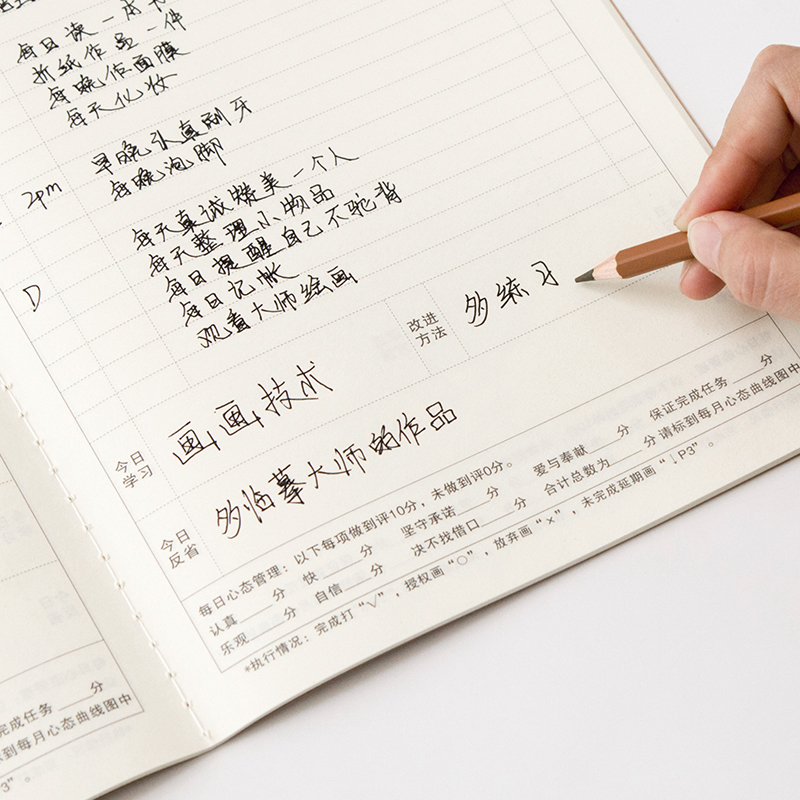 每日读一本书
折纸作品一件
每晚作面膜
每天化妆
早晚认真刷牙
2pm 每晚泡脚
每天真诚赞美一个人
每天整理小物品
每日提醒自己不驼背
D 每日记帐
观看大师绘画
今日学习 画画技术 改进方法 多练习
今日反省 多临摹大师的作品
每日心态管理：以下每项做到评10分，未做到评0分。
认真____分 快____分 坚守承诺____分 爱与奉献____分 保证完成任务____分
乐观____分 自信____分 决不找借口____分 合计总数为____分 请标到每月心态曲线图中
*执行情况：完成打“√”，授权画“○”，放弃画“×”，未完成延期画“↓P3”。
完成任务____分
标到每月心态曲线图中
P3”。